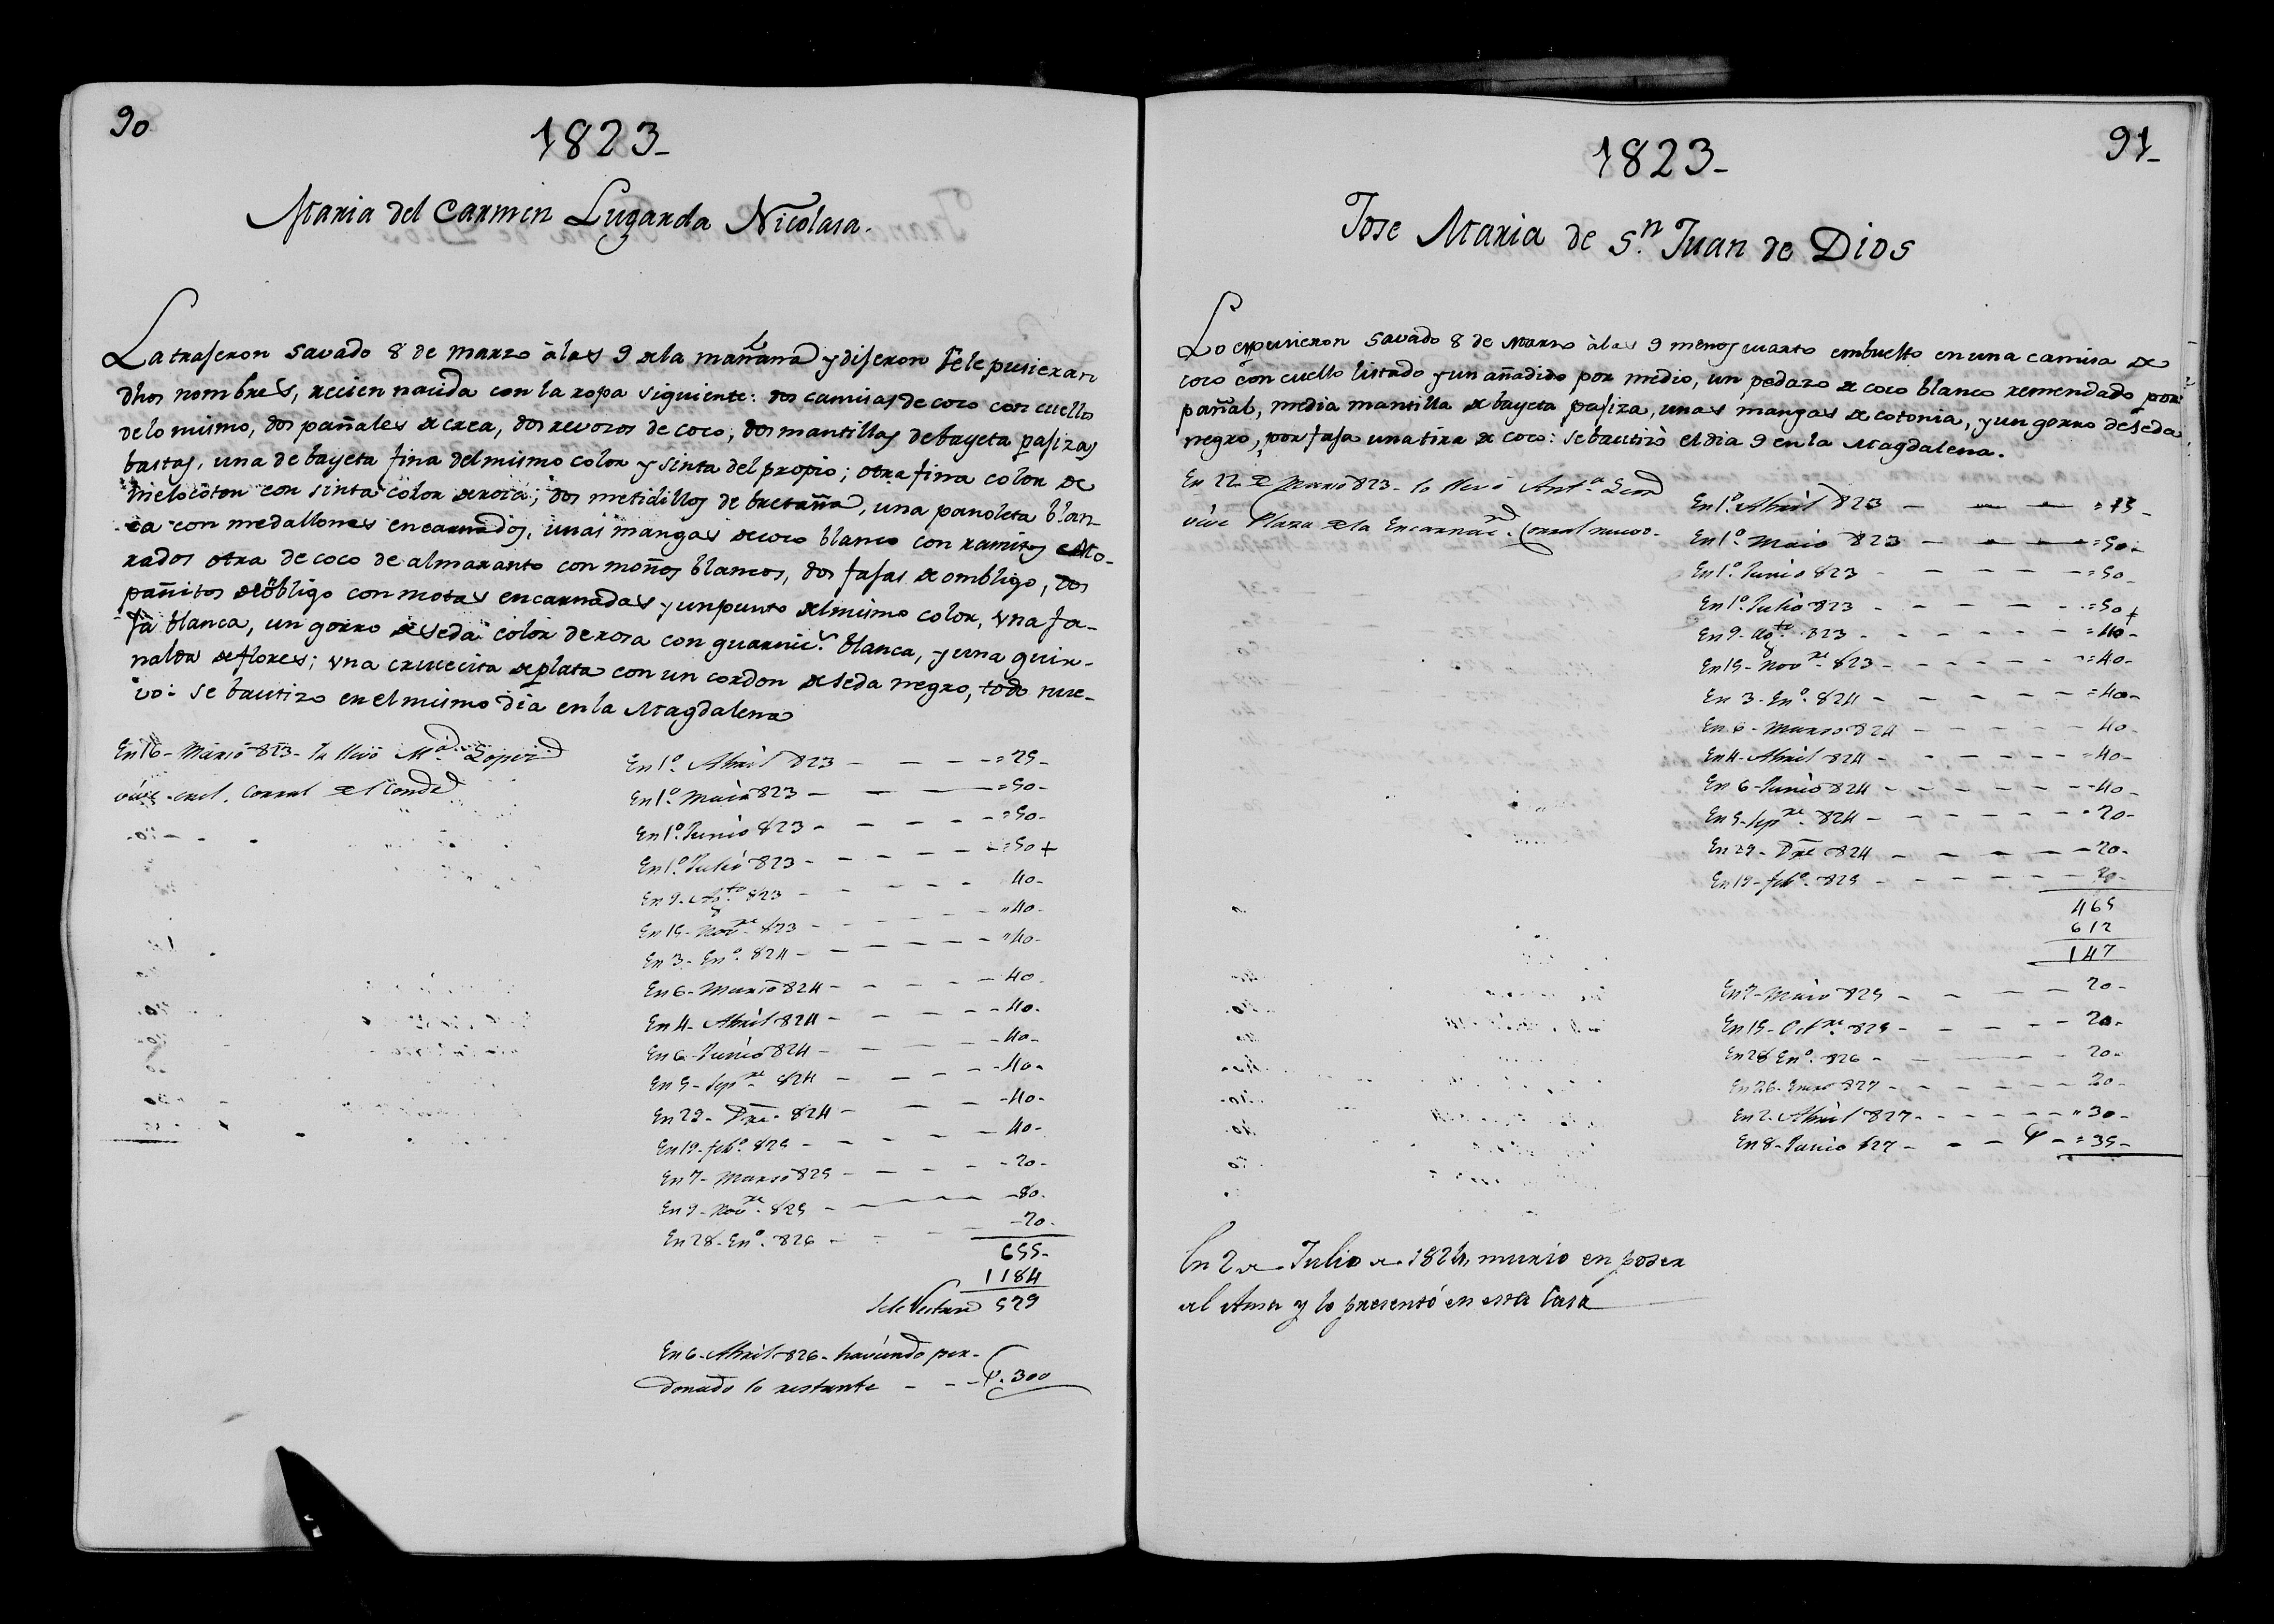 90
1823_
Maria del Carmen Lugarda Nicolasa.
La trageron savado 8 de marzo à las 9 de la mañana y digeron se le pusieran
dhos nombres, recien nacida con la ropa siguiente: dos camisas de coco con cuellos
de lo mismo, dos pañales de crea, dos revosos de coco, dos mantillas de bayeta pasizas
bastas, una de bayeta fina del mismo color y sinta del propio; otra fina color de
melocoton con sinta color de rosa; dos metidillos de bretaña, una pañoleta blan-
ca con medallones encarnados, unas mangas de coco blanco con ramitos mo-
rados otra de coco de almaranto con moños blancos, dos fajas de ombligo, dos
pañitos de ôbligo con motas encarnadas y un punto del mismo color, una fa-
ja blanca, un gorro de seda color de rosa con guarnic.n blanca, y una guir-
nalda de flores; una crucecita de plata con un cordon de seda negro, todo nue-
vo: se bautizo en el mismo dia en la Magdalena
En 16- Marzo 823- la llevó M.a Lopez
vive en el Corral del Conde
En 1.o Abril 823 - - - = 25-
En 1.o Maio 823 - - - = 50-
En 1.o Junio 823 - - - - = 50-
En 1.o Julio 823 - - - - = 50+
En 9- Ag.to 823 - - - - 40-
En 15- Nov.re 823 - - - - "40-
En 3- En.o 824 - - - - "40-
En 6- Marzo 824 - - - - 40-
En 4- Abril 824 - - - - 40-
En 6- Junio 824 - - - - 40-
En 5- Sep.re 824 - - - - 40-
En 29- Dre. 824 - - - - 40-
En 19- feb.o 825 - - - - 40-
En 7- Marzo 825 - - - - 20-
En 9- Nov.re 825 - - - - 80-
En 28- En.o 826 - - - 20-
655-
1184
se le restan 529
En 6- Abril 826- haviendo per-
donado lo restante - - - P. 300
91_
1823_
Jose Maria de S.n Juan de Dios
Lo expusieron savado 8 de Marzo à las 9 menos cuarto embuelto en una camisa de
coco con cuello listado y un añadido por medio, un pedazo de coco blanco remendado por
pañal, media mantilla de bayeta pasiza, unas mangas de cotonia, y un gorro de seda
negro, por faja una tira de coco: se bautizò el dia 9 en la Magdalena.
En 22 de Marzo 823- lo llevó Ant.a
vive Plaza de la Encarnac.n Corral nuevo-
En 1.o Abril 823 - - - = 15-
En 1.o Maio 823 - - - = 50-
En 1.o Junio 823 - - - - = 50-
En 1.o Julio 823 - - - - = 50+
En 9- Ag.to 823 - - - - = 40-
En 15- Nov.re 823 - - - - = 40-
En 3- En.o 824 - - - - = 40-
En 6- Marzo 824 - - - - 40-
En 4- Abril 824 - - - - 40-
En 6- Junio 824 - - - - 40-
En 5- Sep.re 824 - - - - 20-
En 29- Dre 824 - - - - 20-
En 19- feb.o 825 - - - - 20-
465
612
147
En 7- Marzo 825 - - - - 20-
En 15- Oct.re 825 - - - - 20-
En 28 En.o 826 - - - 20-
En 26- Enero 827 - - - - 20-
En 2- Abril 827 - - - - "30-
En 8- Junio 827 - - - P - = 35-
En 2 de Julio de 1824, murio en poder
del Ama y lo presentó en esta Casa